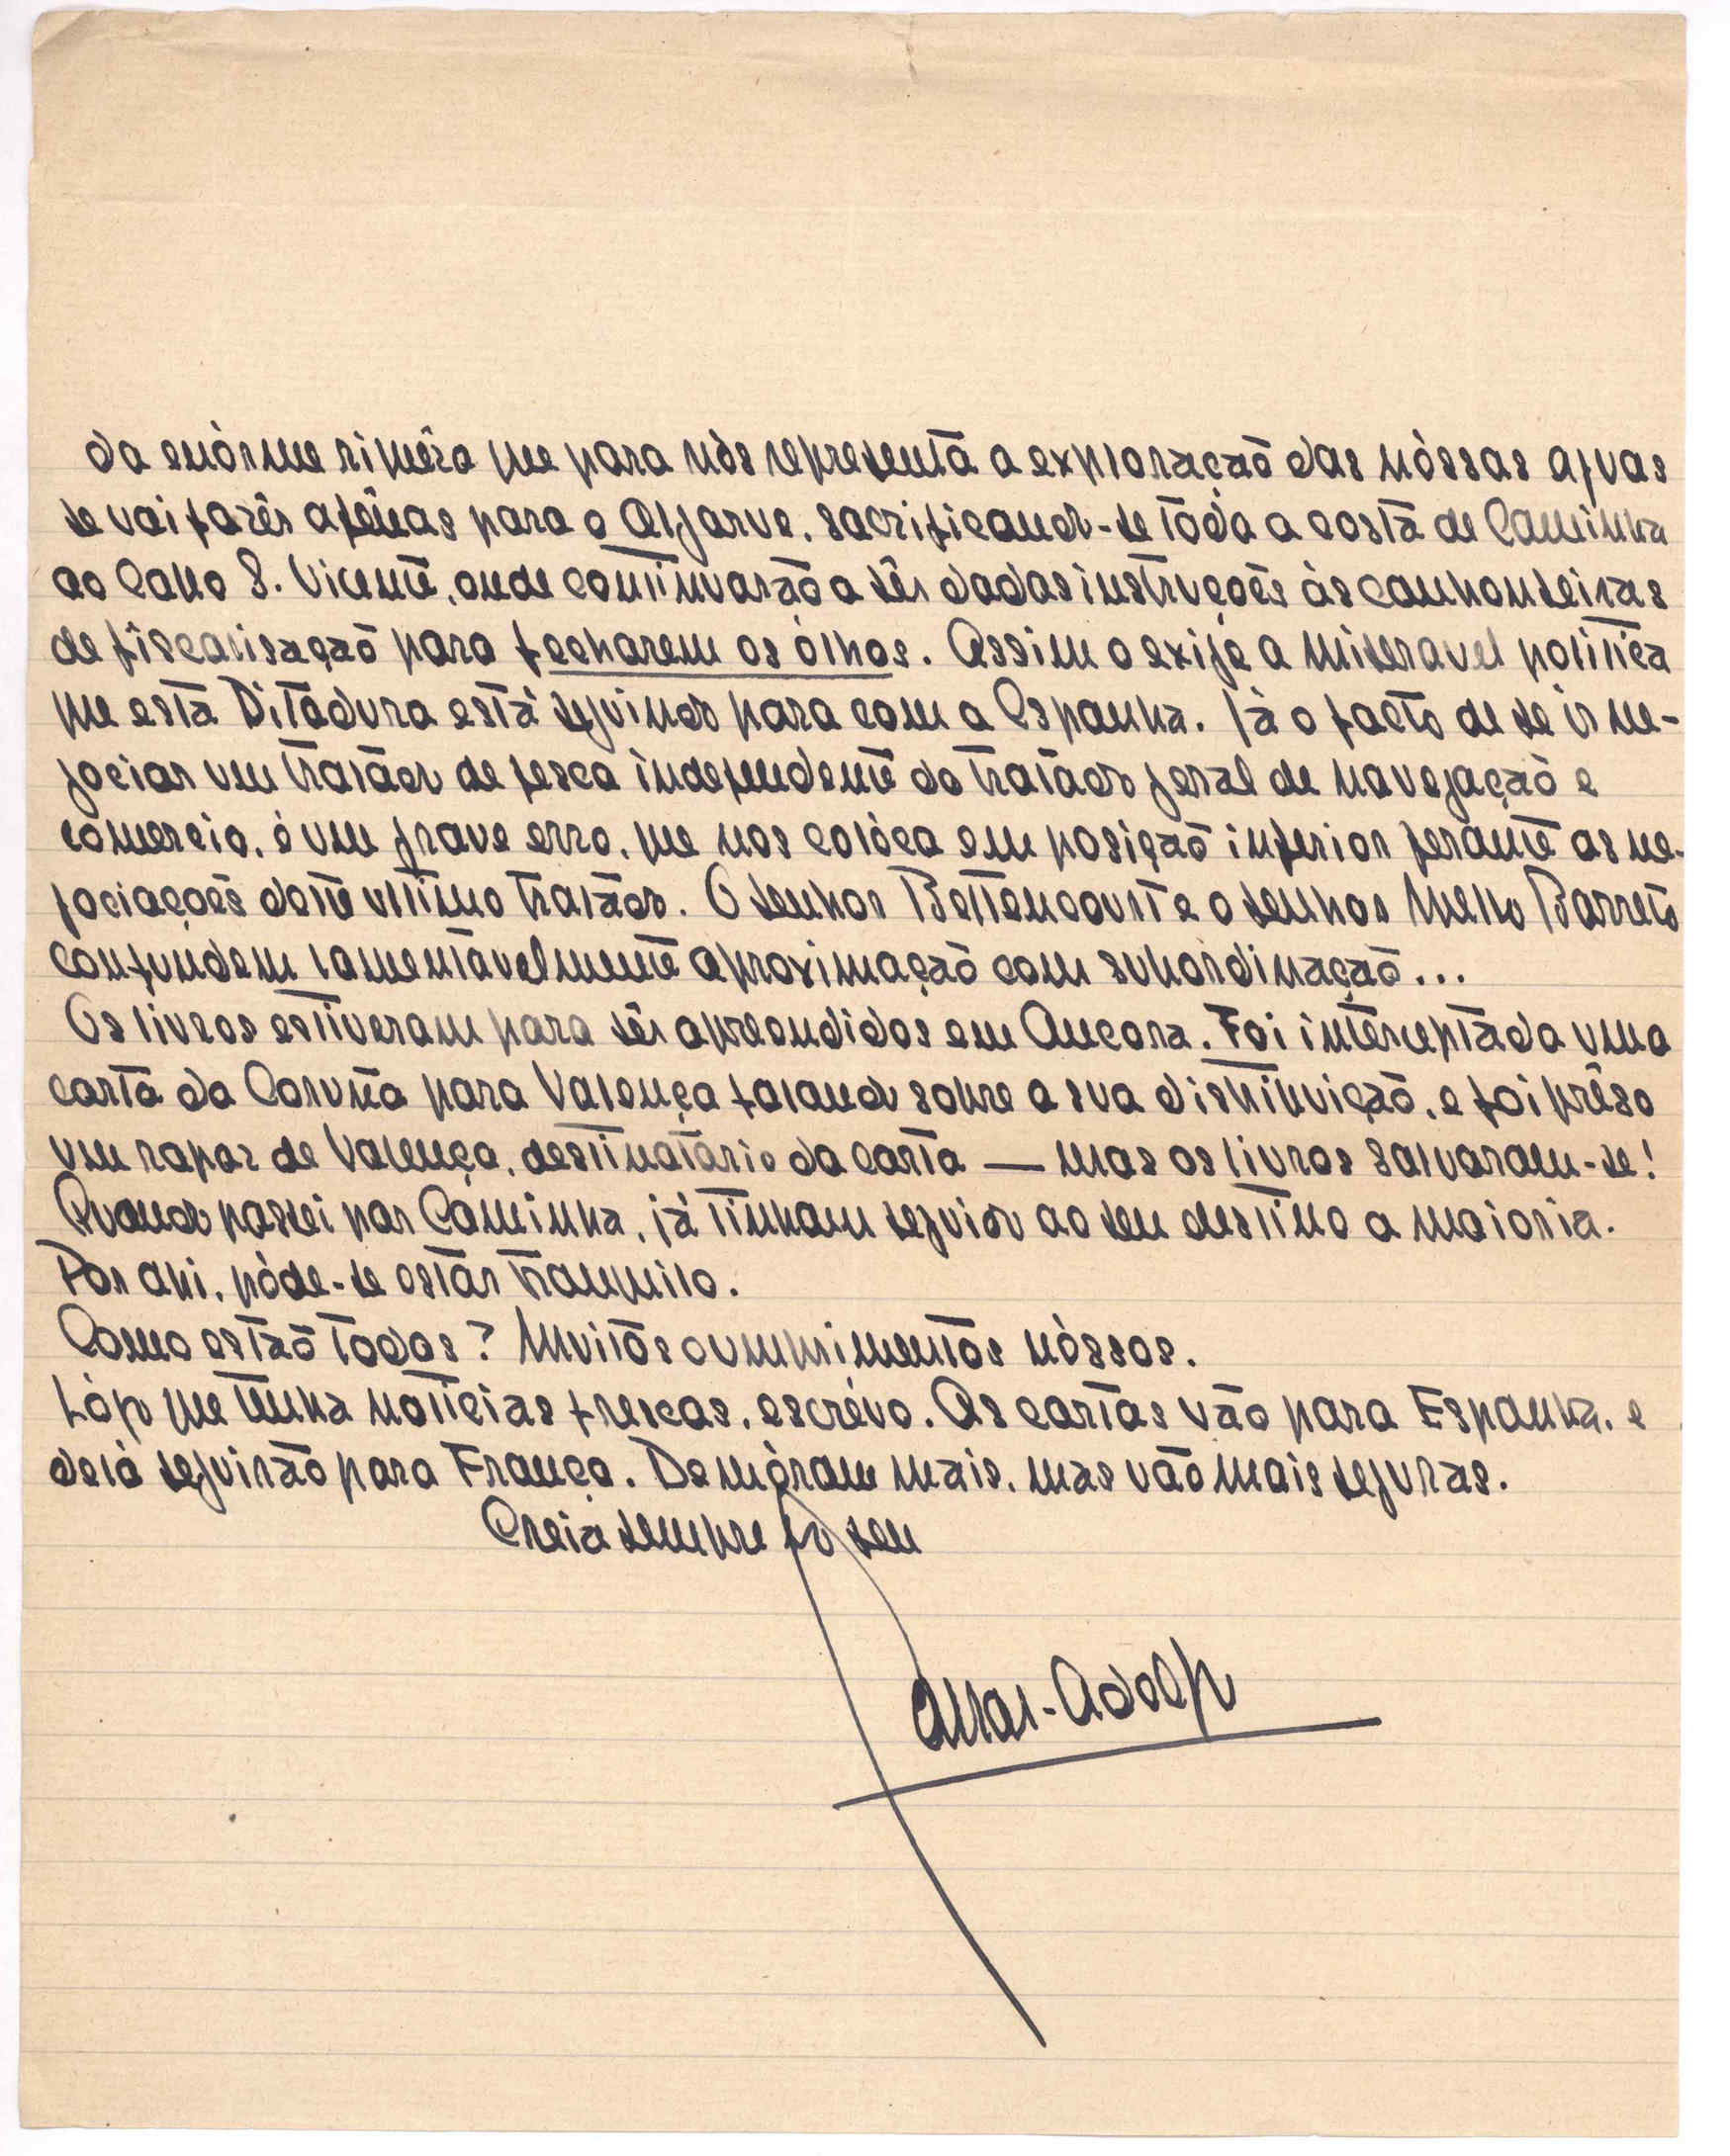 da enórme riquêza que para nós representa a exploração das nóssas aguas
se vai fazêr apênas para o Algarve, sacrificando-se tôda a costa de Caminha
ao Cabo S. Vicente, onde continuarão a sêr dadas instruções às canhonseiras
de fiscalisação para fecharem os ólhos. Assim o exije a miseravel politica
que esta Ditadura está seguindo para com a Espanha. Já o facto de se ir ne-
gociar um tratado de pesca independente do tratado geral de navegação e
comercio, é um grave erro, que nos colóca em posição inferior perante as ne-
gociações deste ultimo tratado. O senhor Bettencourt e o senhor Mello Barreto
confundem lamentavelmente aproximação com subordinação...
Os livros estiveram para sêr apreendidos em Ancora. Foi interceptada uma
carta da Coruña para Valença falando sobre a sua distribuição, e foi prêso
um rapaz de Valença, destinatario da carta — mas os livros salvaram-se!
Quando passei por Caminha, já tinham seguido ao seu destino a maioria.
Por ahi, póde-se estár tranquilo.
Como estão todos? Muitos cumprimentos nóssos.
Lógo que tenha noticias frescas, escrévo. As cartas vão para Espanha, e
delá seguirão para França. Demóram mais, mas vão mais seguras.
Creia sempre no seu